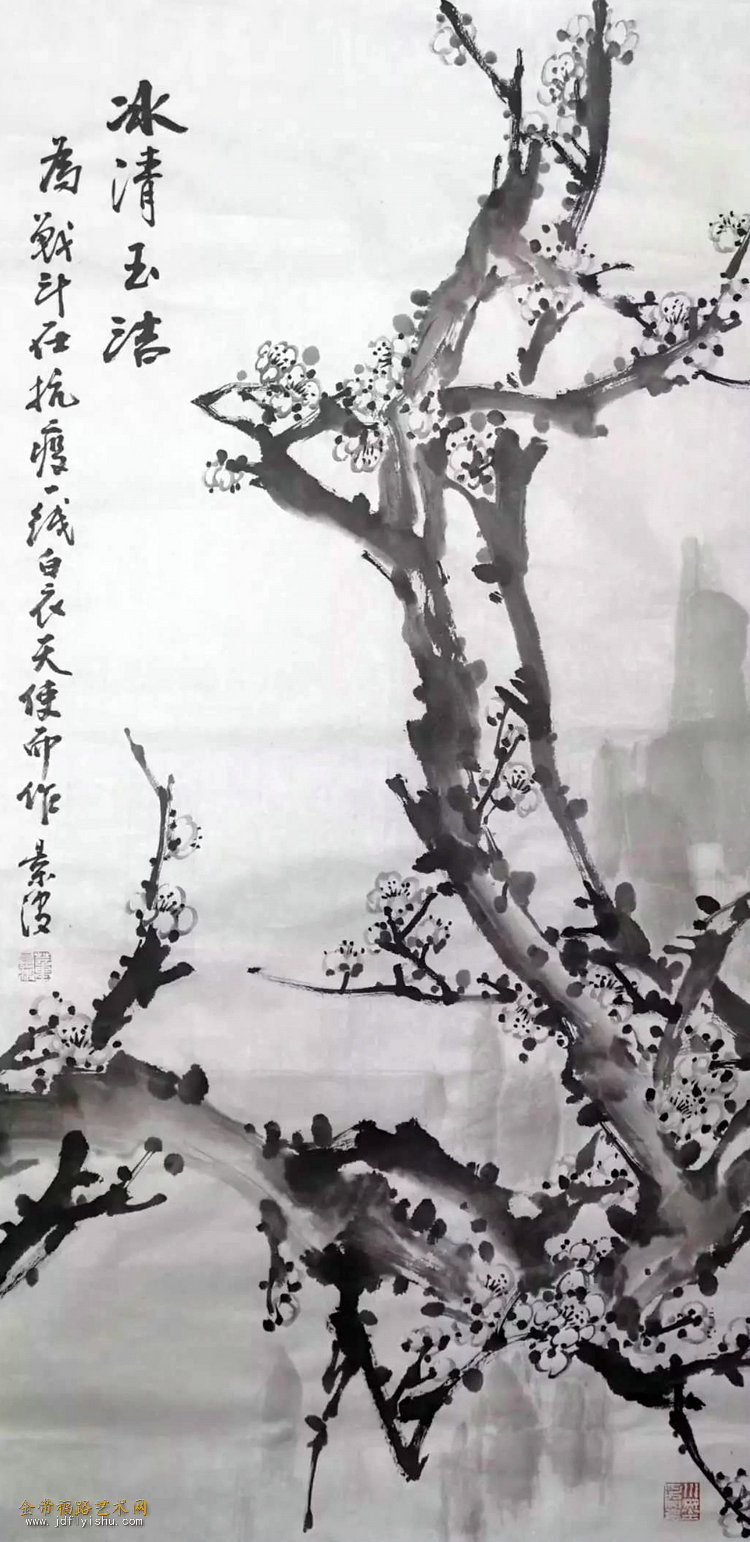 冰清玉洁
為战斗在抗疫一线白衣天使而作 景波
金带福路艺术网
www.jdflyishu.com